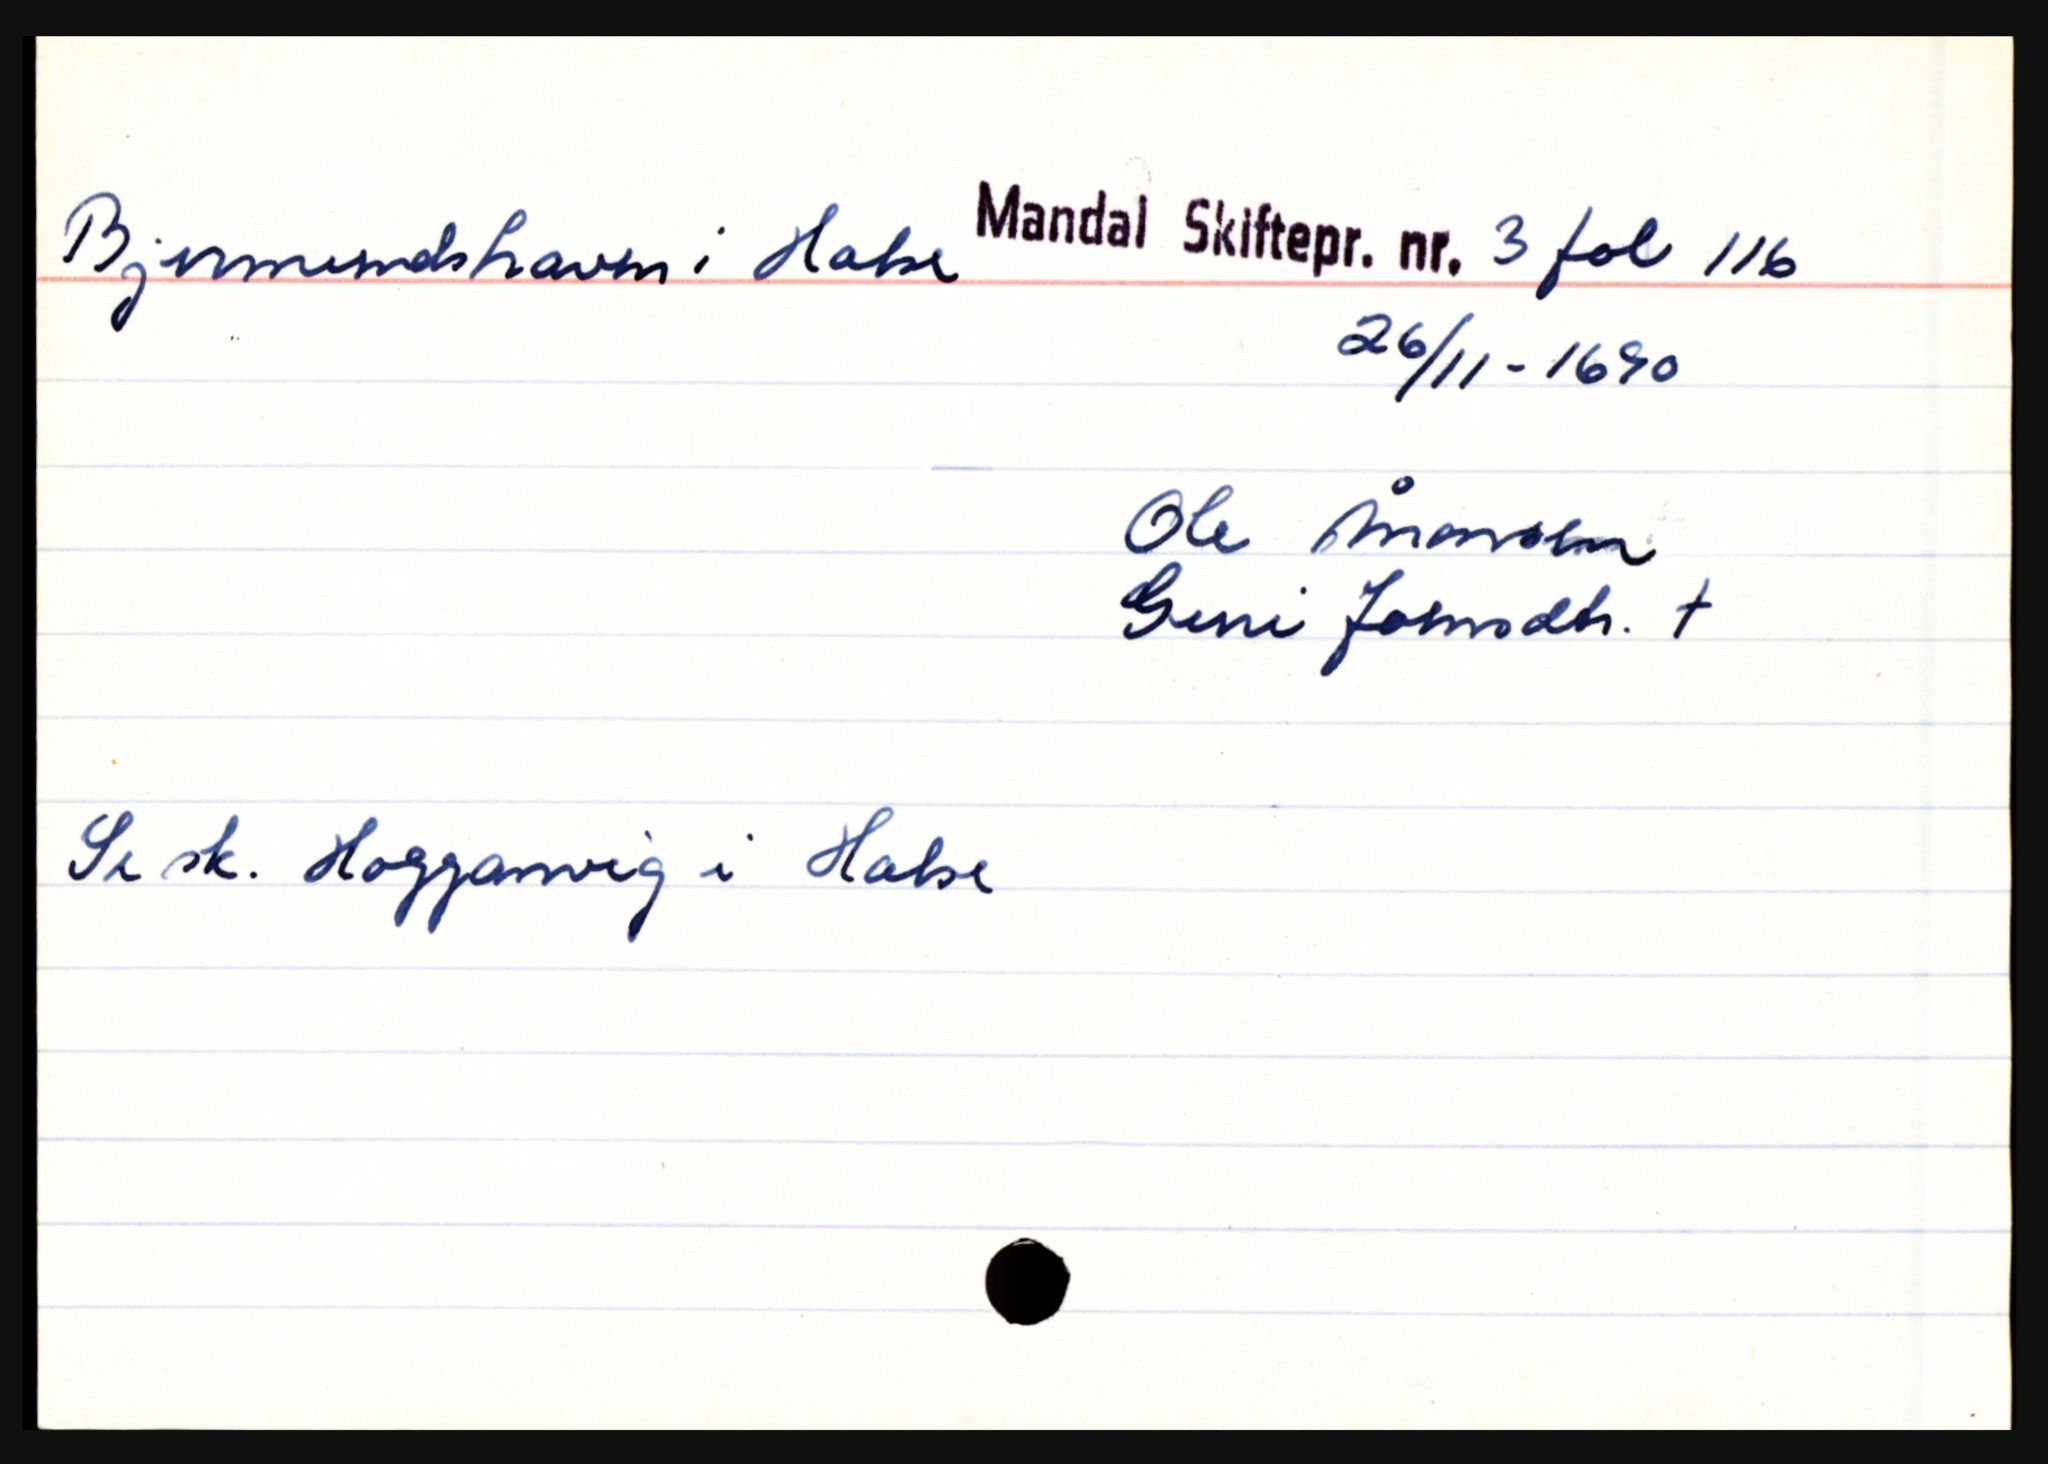 Bjermundshaven i Halse Mandal Skiftepr. nr. 3 fol 116
26/11-1690
Ole Åmonsen
Guri Josmodtr. †
Se sk. Hogganvig i Halse